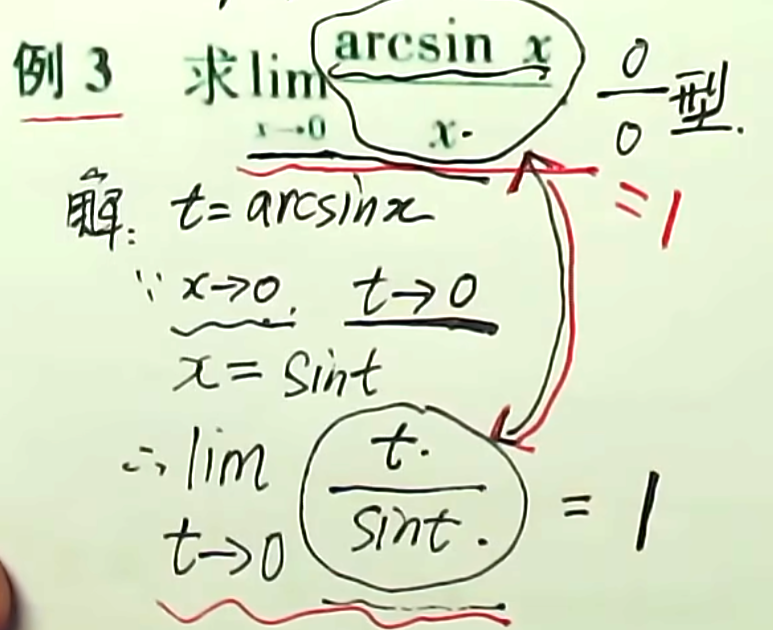 例 3 求 lim x→0 arcsin x / x. 0/0 型.
= 1
解: t = arcsinx
∵ x→0. t→0
x = sint
∴ lim t→0 t. / sint. = 1